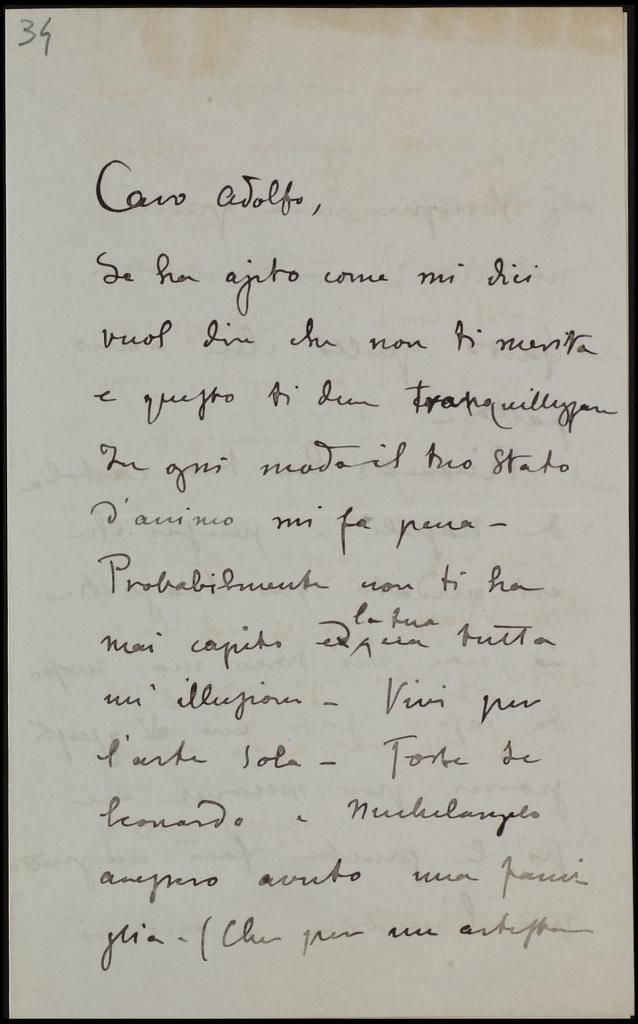 34
Caro Adolfo,
Se ha agito come mi dici
vuol dire che non ti merita
e questo ti deve tranquillizzare
In ogni modo il tuo stato
d'animo mi fa pena -
Probabilmente non ti ha
mai capito ed era la tua tutta
un' illusione - Vivi per
l'arte sola - Forse se
Leonardo e Michelangelo
avessero avuto una fami
glia - (Che per un artista